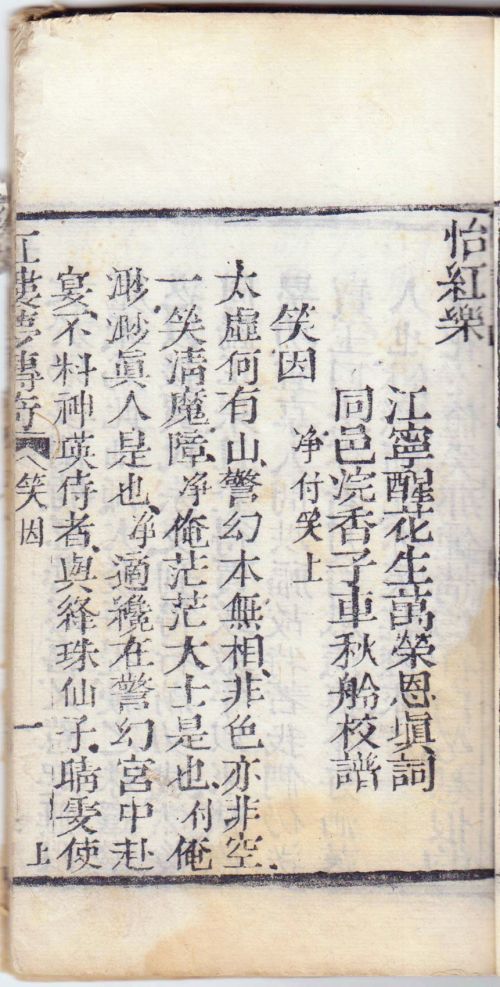 怡紅樂
江寧醒花生萬榮恩塡詞
同邑浣香子車秋舲校譜
笑因
淨付笑上
太虛何有山、警幻本無相、非色亦非空、
一笑淸魔障、淨俺茫茫大士是也、付俺
渺渺眞人是也、淨適纔在警幻宮中赴
宴、不料神瑛侍者、與絳珠仙子、晴雯使
紅樓夢傳奇 笑因 一 上